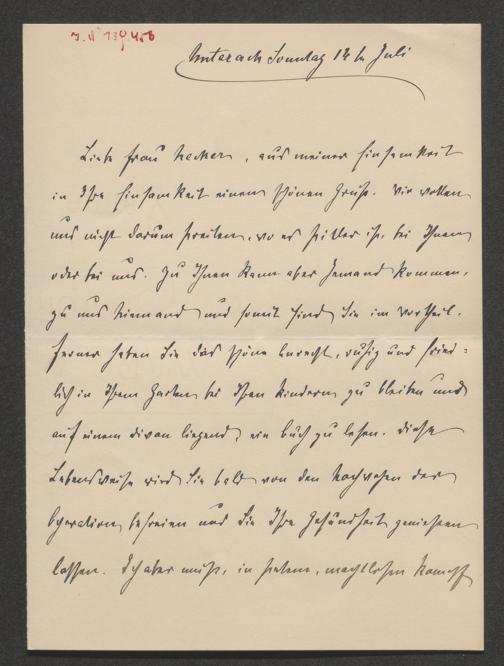 J.N 139456
Unterach Sonntag 14 ten Juli
Liebe Frau Necker, aus meiner Einsamkeit
in Ihre Einsamkeit einen schönen Gruß. Wir wollen
uns nicht darum streiten, wo es stiller ist, bei Ihnen
oder bei uns. Zu Ihnen kann aber Jemand kommen,
zu uns Niemand und somit sind Sie im Vortheil.
Ferner haben Sie das schöne Anrecht, ruhig und fried-
lich in Ihrem Garten bei Ihren Kindern zu bleiben und
auf einem Divan liegend, ein Buch zu lesen. Diese
Lebensweise wird Sie bald von den Nachwehen der
Operation befreien und Sie Ihre Gesundheit genießen
lassen. Ich aber muß, in stetem, machtlosen Kampf